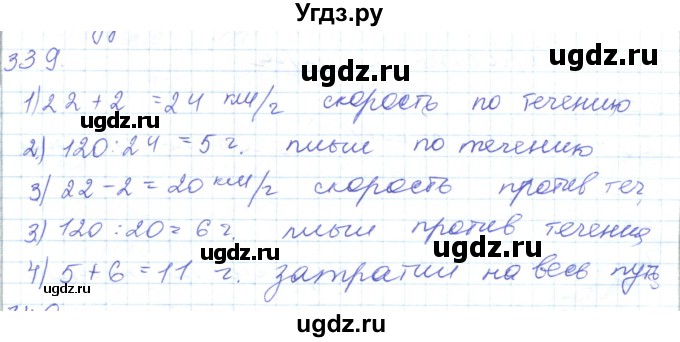 Угдз.ру
339.
1) 22 + 2 = 24 км/г скорость по течению
2) 120 : 24 = 5 г. плыл по течению
3) 22 - 2 = 20 км/г скорость против теч,
3) 120 : 20 = 6 г. плыл против течения
4) 5 + 6 = 11 г. затратил на весь путь
ugdz.ru
ugdz.ru
ugdz.ru
ugdz.ru
ugdz.ru
ugdz.ru
ugdz.ru
ugdz.ru
ugdz.ru